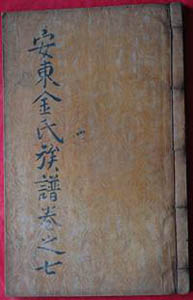 安東金氏族譜卷之七